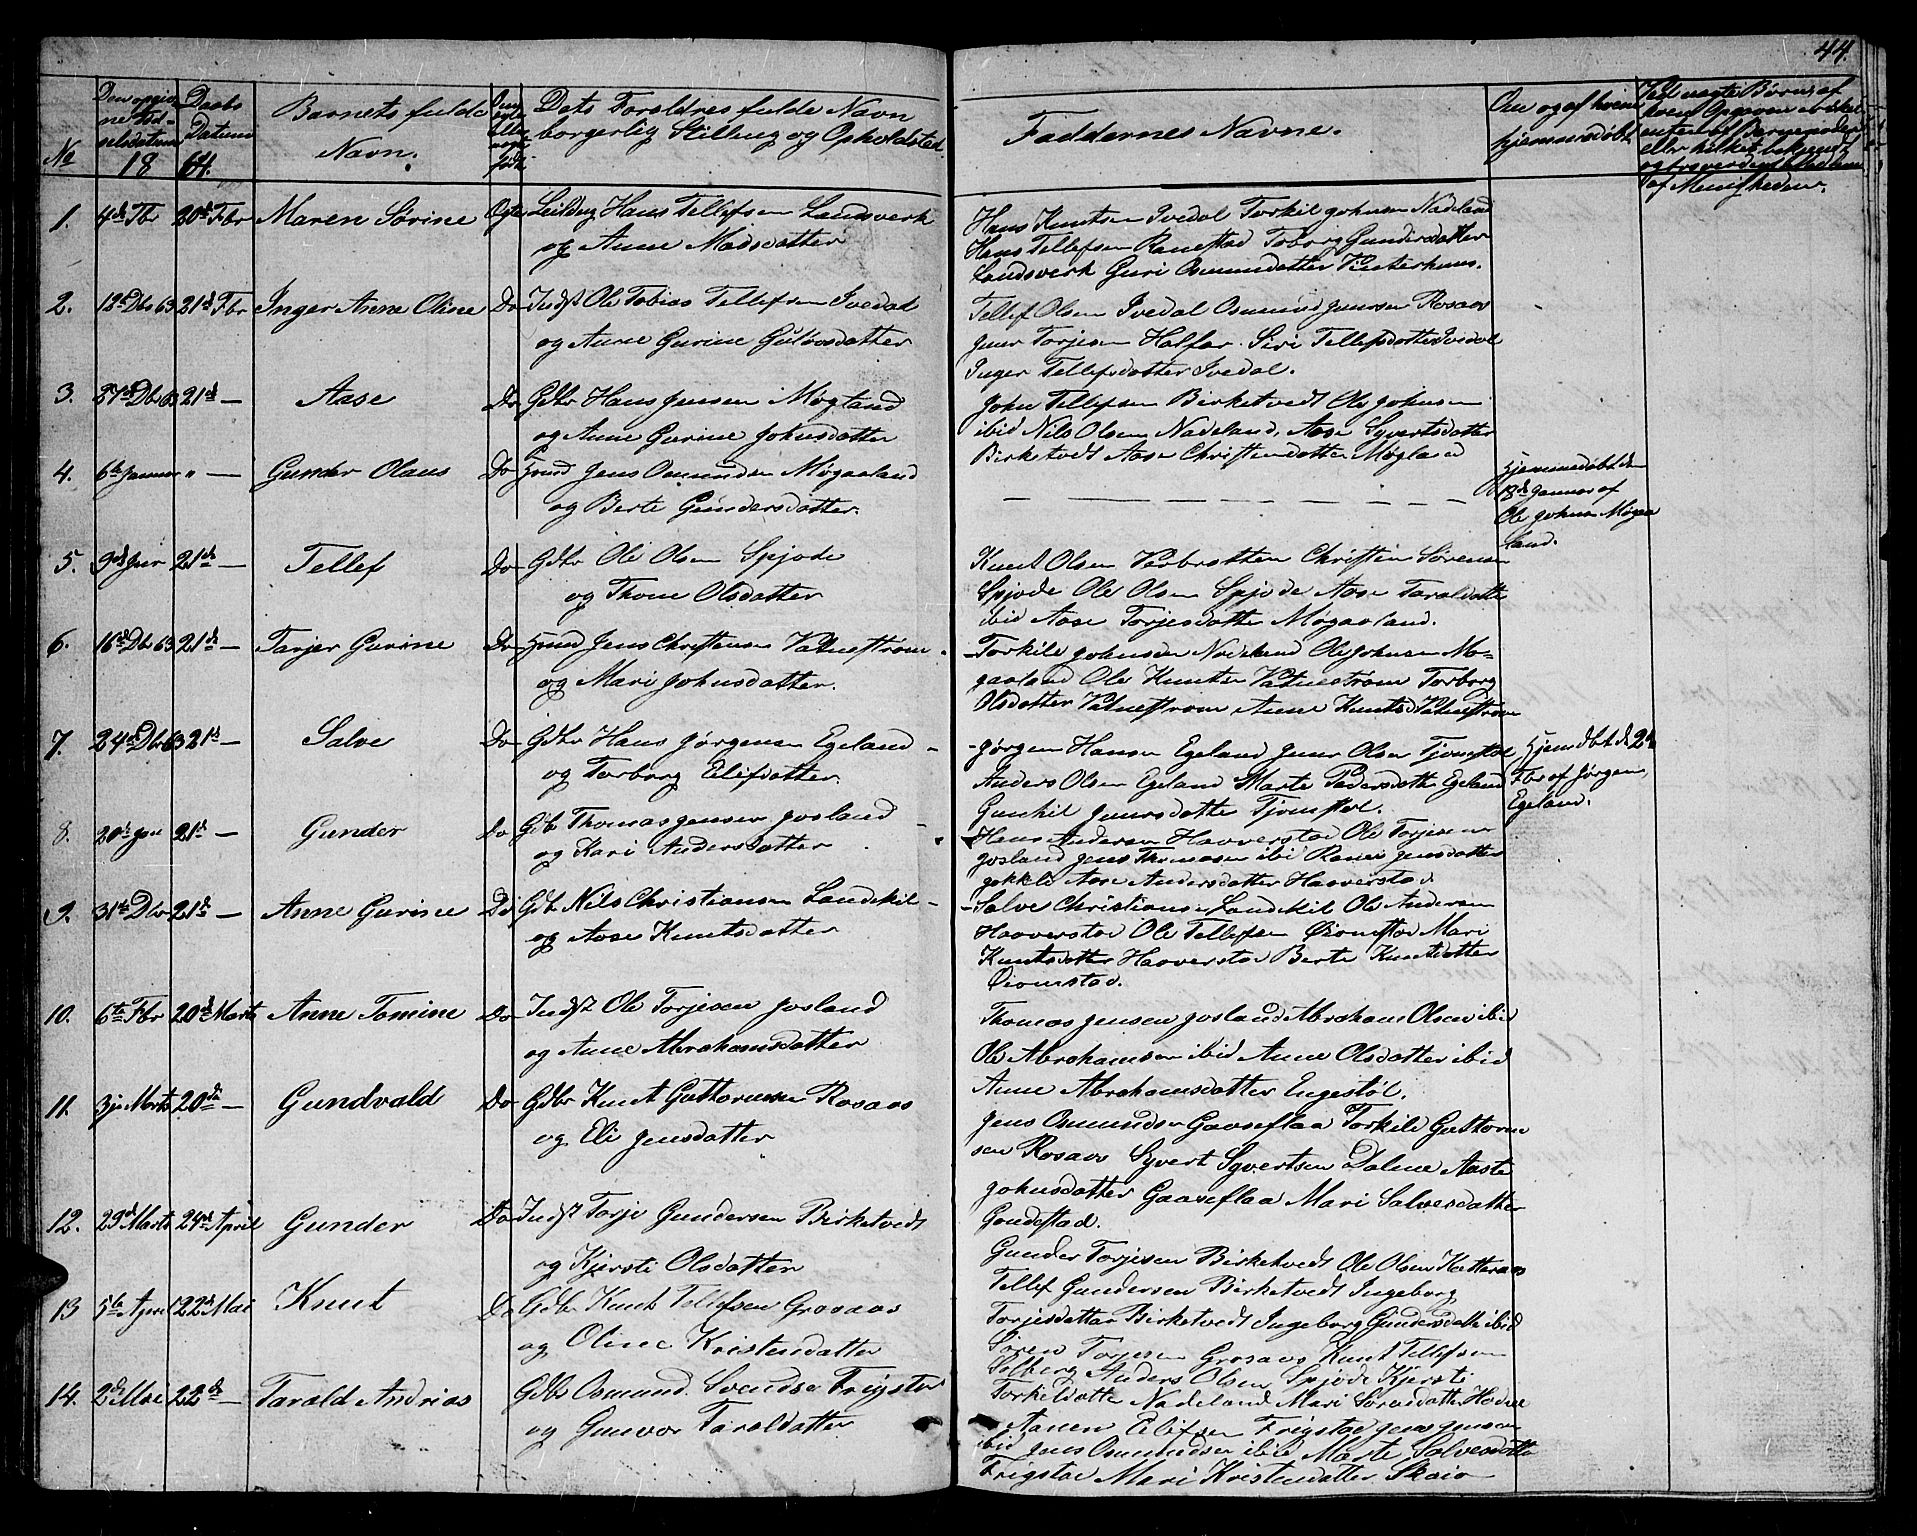 44.
No
Den opgiv
ne Fød-
selsdatum
18
Daabs
Datum
64.
Barnets fulde
Navn.
Dets Foraldres fulde Navn
borgerlig Stilling og Opholdsted.
Faddernes Navne.
Om og af hvem
hjemmedøbt
af Menigheden.
1. 4de Fbr 20de Fbr Maren Sørine Ægte Leilding Hans Tellefsen Landsverk
og Anne Madsdatter
Hans Knutsen Ivedal Torkil Johnsen Nadeland
Hans Tellefsen Ranestad Toborg Gundersdatter
Landsverk Guri Osmundatter Vesterhuus.
2. 12te Dbr 63 21de Fbr Inger Anne Oline Do Indst Ole Tobias Tellefsen Ivedal
og Anne Gurine Gulovsdatter
Tellef Olsen Ivedal Osmund Jensen Rosaas
Jens Torjesen Halfar. Siri Tellefsdatter Ivedal
Inger Tellefsdatter Ivedal.
3. 27de Dbr 63 21de — Aase Do Gdbr Hans Jensen Møgland
og Anne Gurine Johnsdatter
John Tellefsen Birketvedt Ole Johnsen
ibid Nils Olsen Nadeland, Aase Syvertsdatter
Birketvedt Aase Christiendatter Møgland
4. 6te Januar " — Gunder Olaus Do Huusd Jens Osmundsen Møgaaland
og Berte Gundersdatter.
Hjemmedøbt den
13de Januar af
Ole Johnsen Møgaa
land.
5. 9de Jnr 21de — Tellef Do Gdbr Ole Olsen Spjode
og Thone Olsdatter
Knut Olsen Verbratten Christen Sørensen
Spjode Ole Olsen Spjode Aase Taraldsdatte
ibid Aase Torjesdatter Møgaaland.
6. 16de Dbr 63 21de — Tarjer Gurine Do Huusd Jens Christensen Vatnestrøm
og Mari Johnsdatter.
Torkild Johnsen Nadeland Ole Johnsen Mø-
gaaland Ole Knutsen Vatnestrøm Torborg
Olsdatter Vatnestrøm Anne Knutsd Vatnestrøm
7. 24de Dbr 63 21de — Salve Do Gdbr Hans Jørgensen Egeland
og Torborg Elifsdatter.
Jørgen Hansen Egeland Jens Olsen Tjomstøl
Anders Olsen Egeland Marte Pedersdatte Egeland
Gunhil Jensdatter Tjomstøl.
Hjemdøbt d 2de
Fbr af Jørgen
Egeland.
8. 20de Jnr 21de — Gunder Do Gdb Thomas Jensen Josland
og Kari Andersdatter
Hans Andersen Haaverstad Ole Torjesen
Josland Jens Thomasen ibi Ranei Jensdatter
Jokkeli Aase Andersdatter Haaverstad
9. 31te Dbr 21de — Anne Gurine Do Gdb Nils Christiansen Landskil
og Aase Knutsdatter
Salve Christiansen Landskil Ole Andersen
Haaverstad Ole Tellefsen Øiomstad Mari
Knutsdatter Haaverstad Berte Knutsdatter
Øiomstad.
10. 6te Fbr 20de Marts Anne Tomine Do Indst Ole Torjesen Josland
og Anne Abrahamsdatter
Thomas Jensen Josland Abraham Olsen ibid
Ole Abrahamsen ibid Anne Olsdatter ibid
Anne Abrahamsdatter Engestøl.
11. 3je Marts 20de — Gundvald Do Gdbr Knut Guttormsen Rosaas
og Eli Jensdatter
Jens Osmundsen Gaaseflaa Torkild Guttorm
sen Rosaas Syvert Syvertsen Dalene Aaste
Johnsdatter Gaaseflaa Mari Salvesdatter
Gondestad.
12. 23de Marts 24de April Gunder Do Indst Torje Gundersen Birketvedt
og Kjersti Olsdatter
Gunder Torjesen Birketvedt Ole Olsen Hatteraas
Tellef Gundersen Birketvedt Ingeborg
Torjesdatter Birketvedt Ingeborg Gundersdatte ibid
13 5te April 22de Mai Knut Do Gdbr Knut Tellefsen Grosaas
og Oline Kristensdatter
Søren Torjesen Grosaas Knut Tellefsen
Solberg Anders Olsen Spjode Kjersti
Torkelsdatter Nadeland Mari Sørensdatter
14. 2de Mai 22de — Tarald Andrias Gdbr Osmund Svendsen Frigstad
og Gunvor Taraldsdatter
Aanen Elifsen Frigstad Jens Jensen
ibid Jens Osmundsen ibid Marte Salvesdatter
Frigstad Mari Kristensdatter Skaiaa